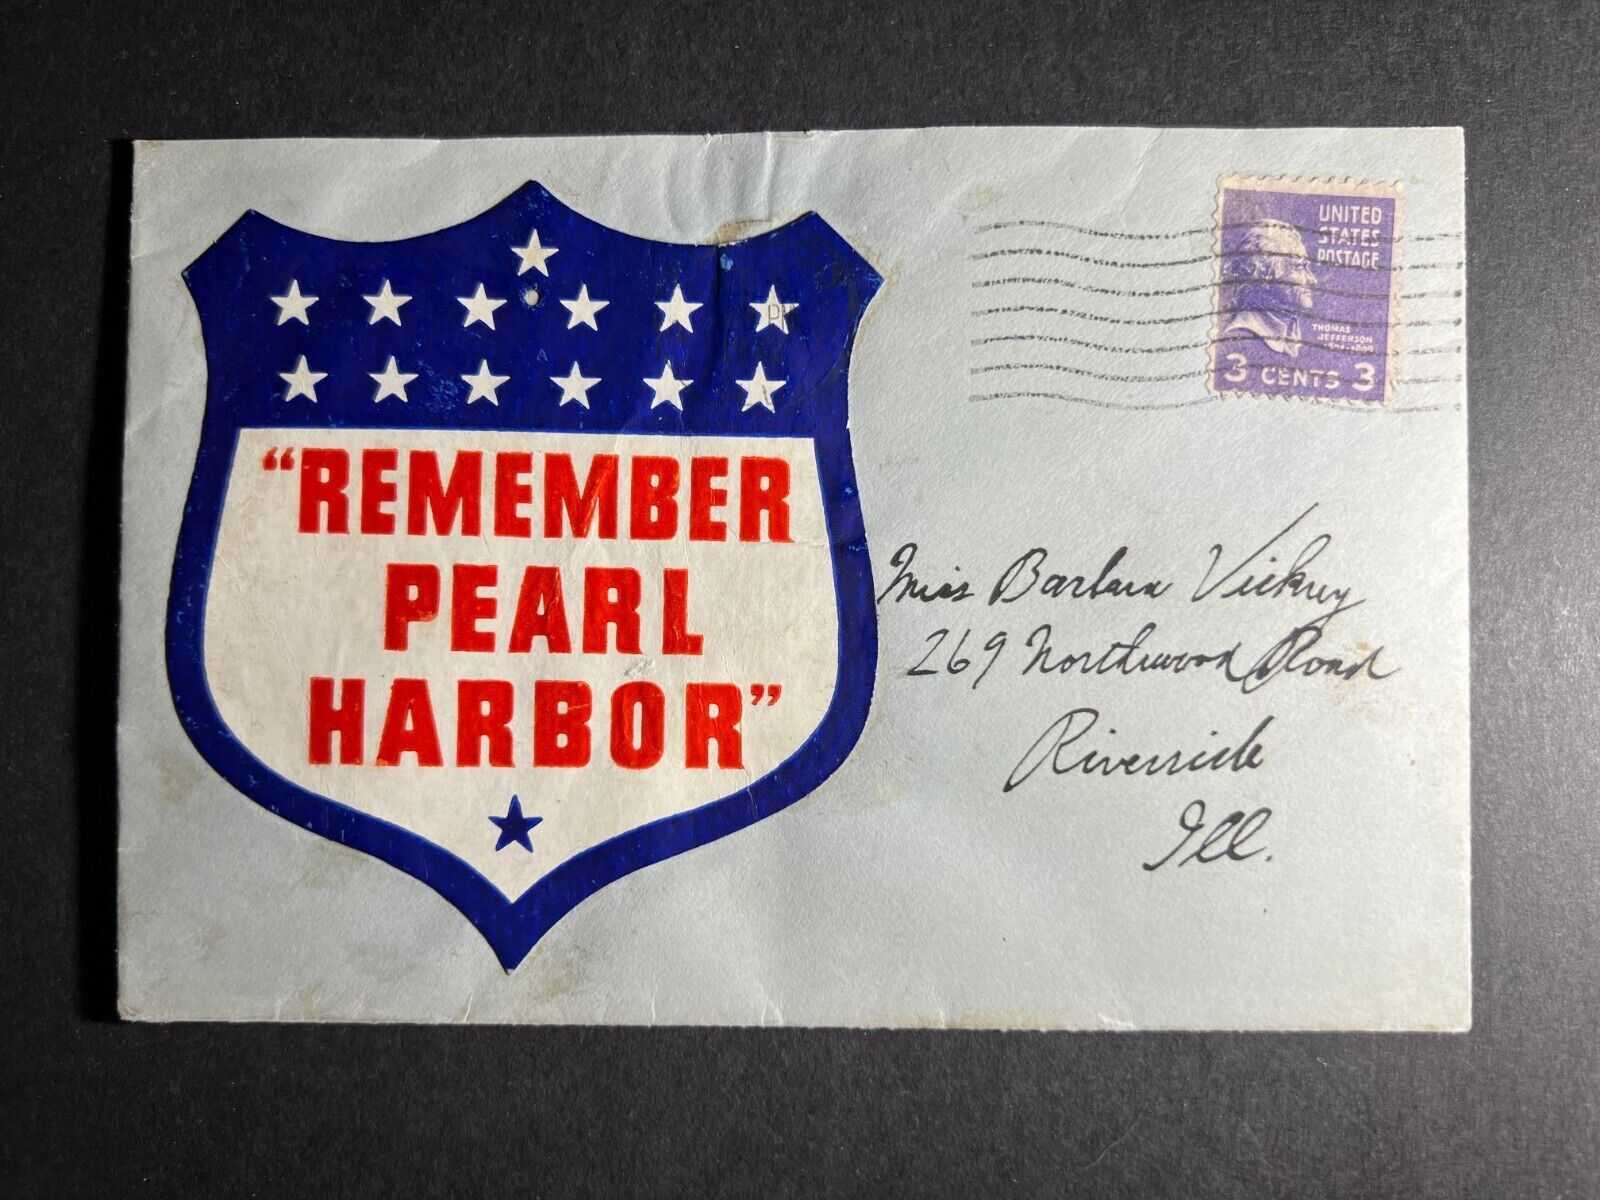 UNITED
STATES
POSTAGE
THOMAS
JEFFERSON
1801-1809
3 CENTS 3
PM
“REMEMBER
PEARL
HARBOR”
Miss Barbara Vickrey
269 Northwood Road
Riverside
Ill.